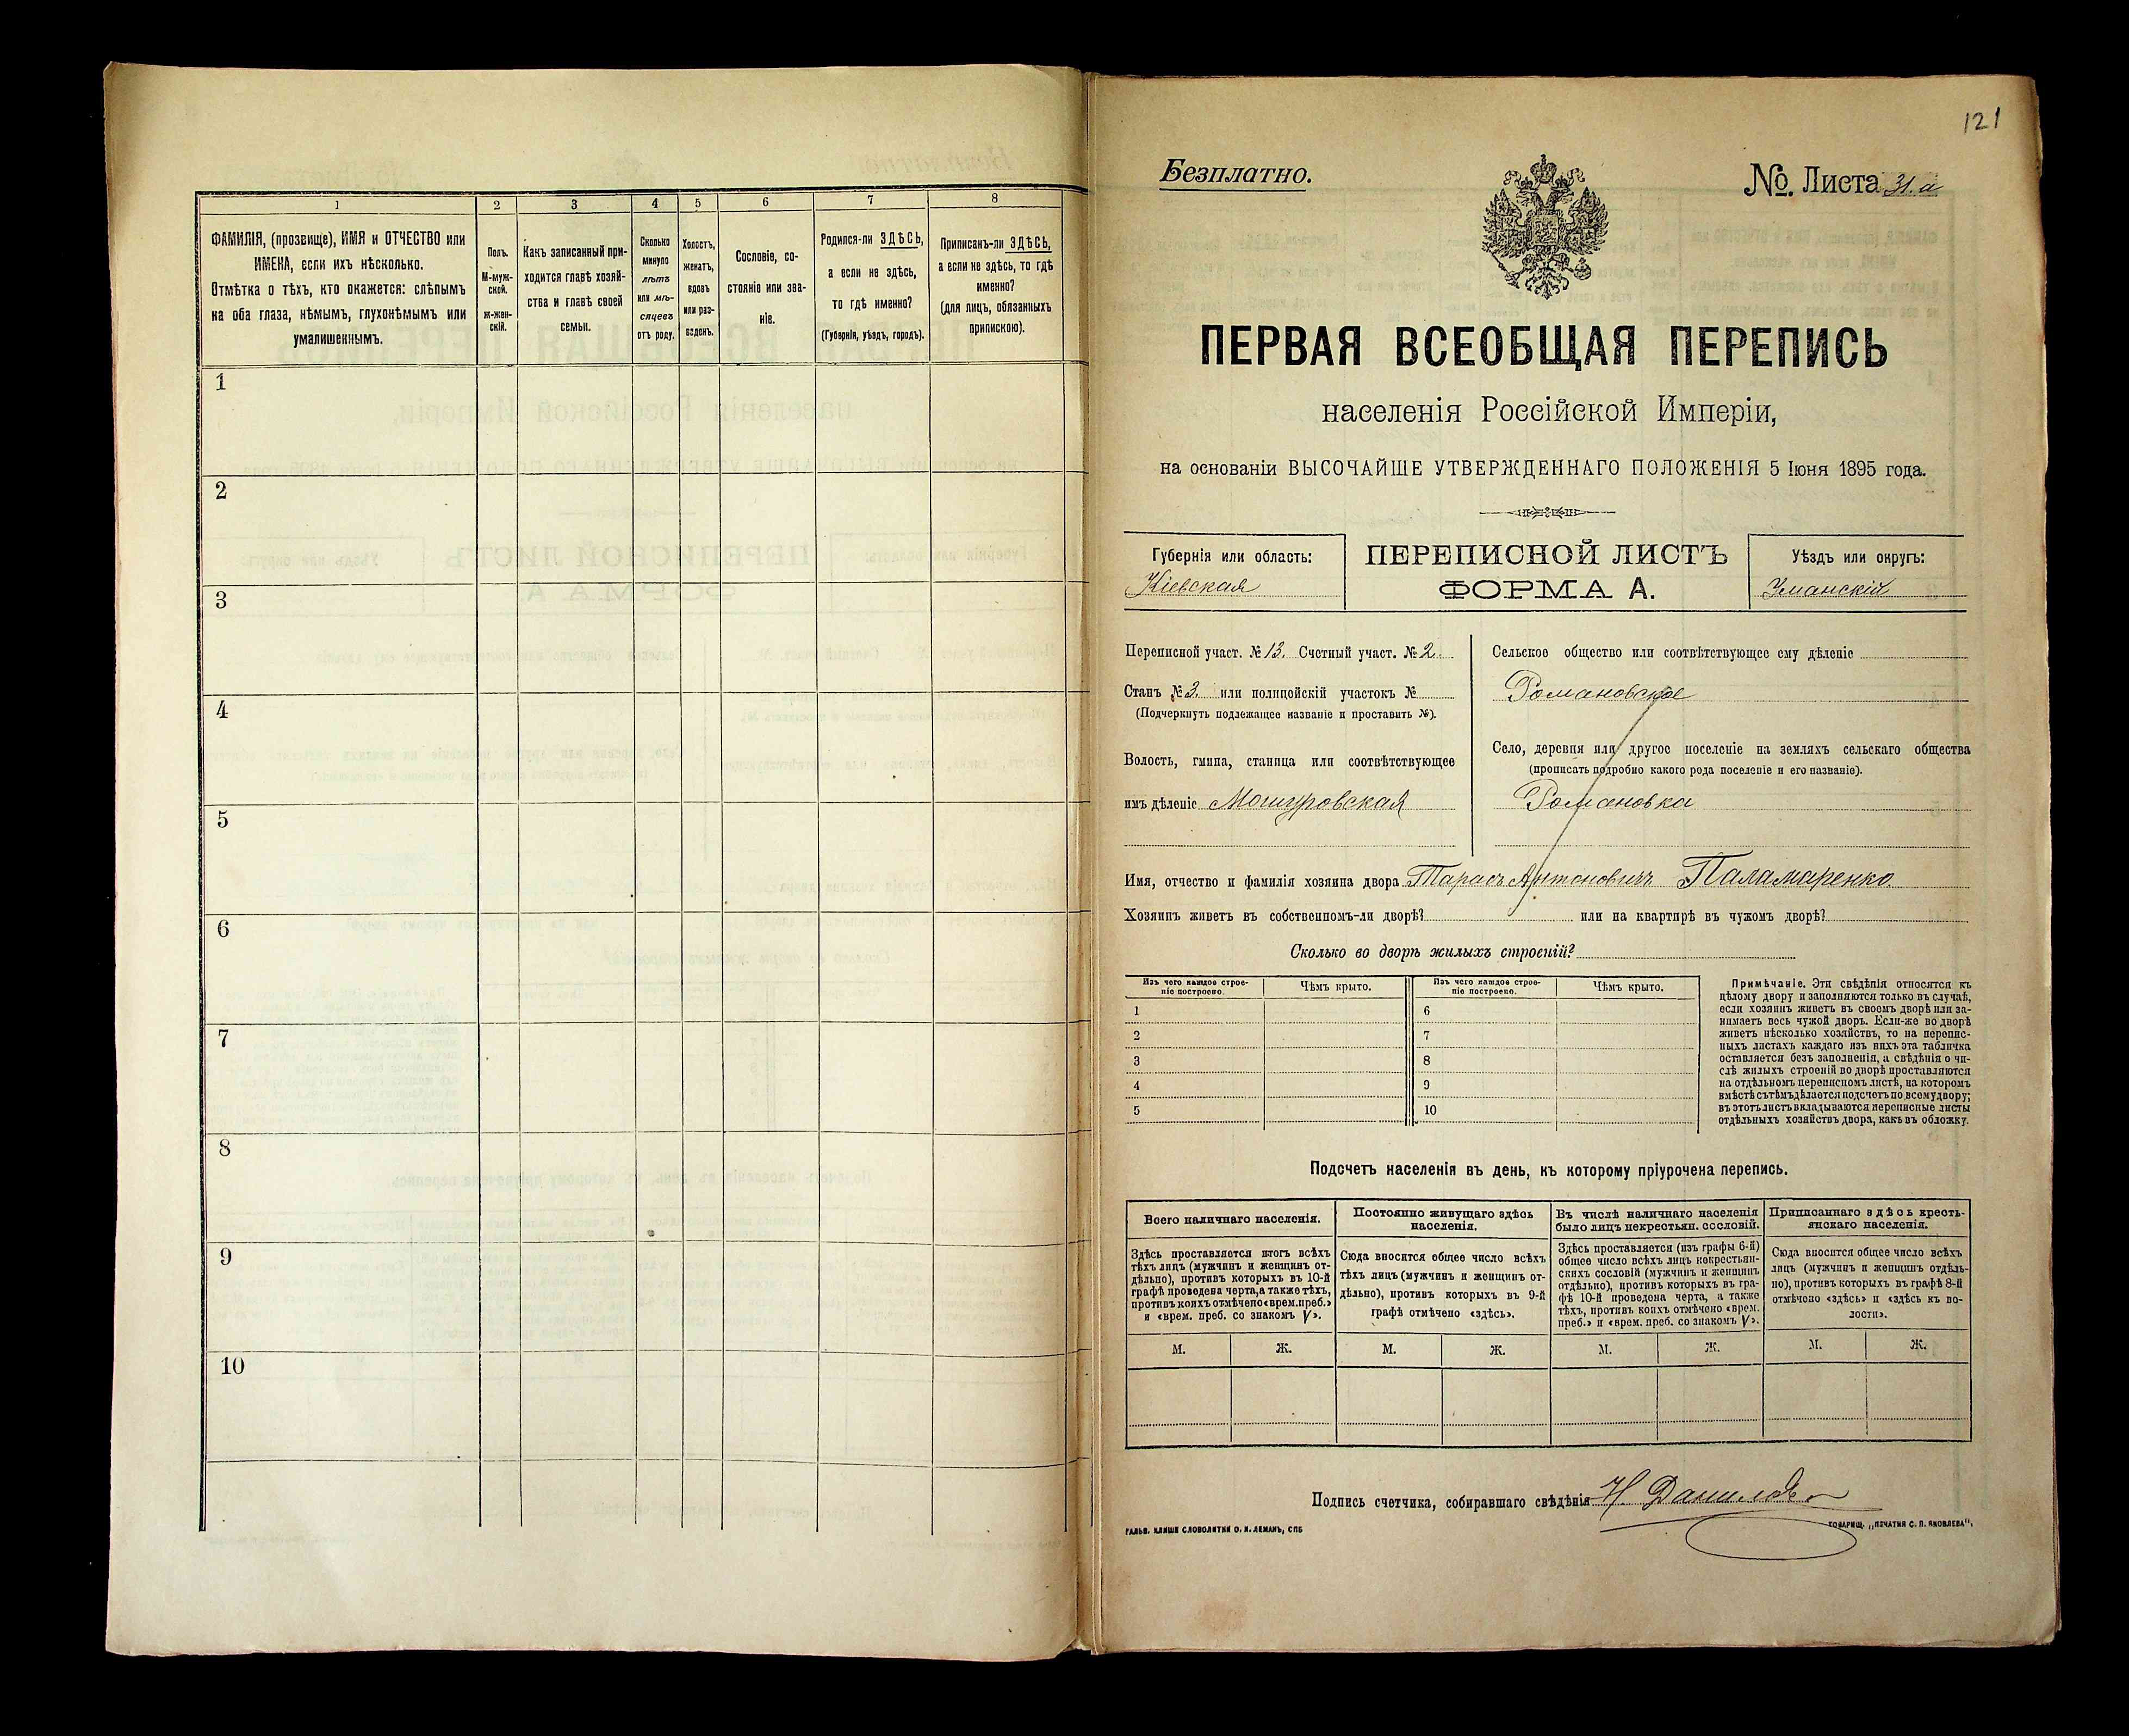 1
2
3
4
5
6
7
8
ФАМИЛІЯ, (прозвище), ИМЯ и ОТЧЕСТВО или
ИМЕНА, если ихъ нѣсколько.
Отмѣтка о тѣхъ, кто окажется: слѣпымъ
на оба глаза, нѣмымъ, глухонѣмымъ или
умалишеннымъ.
Полъ.
М-муж-
ской.
Ж-жен-
скій.
Какъ записанный при-
ходится главѣ хозяй-
ства и главѣ своей
семьи.
Сколько
минуло
лѣтъ
или мѣ-
сяцевъ
отъ роду.
Холостъ,
женатъ,
вдовъ
или раз-
веденъ.
Сословіе, со-
стояніе или зва-
ніе.
Родился-ли ЗДѢСЬ,
а если не здѣсь,
то гдѣ именно?
(Губернія, уѣздъ, городъ).
Приписанъ-ли ЗДѢСЬ,
а если не здѣсь, то гдѣ
именно?
(для лицъ, обязанныхъ
припискою).
1
2
3
4
5
6
7
8
9
10
121
Безплатно.
№. Листа 31.а
ПЕРВАЯ ВСЕОБЩАЯ ПЕРЕПИСЬ
населенія Россійской Имперіи,
на основаніи ВЫСОЧАЙШЕ УТВЕРЖДЕННАГО ПОЛОЖЕНІЯ 5 Іюня 1895 года.
Губернія или область:
Кіевская
ПЕРЕПИСНОЙ ЛИСТЪ
ФОРМА А.
Уѣздъ или округъ:
Уманскій
Переписной участ. № 13. Счетный участ. № 2.
Станъ № 3. или полицойскій участокъ №
(Подчеркнуть подлежащее названіе и проставить №).
Волость, гмина, станица или соотвѣтствующее
имъ дѣленіе Мошуровская
Сельское общество или соотвѣтствующее ему дѣленіе
Романовское
Село, деревня или другое поселеніе на земляхъ сельскаго общества
(прописать подробно какого рода поселеніе и его названіе).
Романовка
Имя, отчество и фамилія хозяина двора Тарасъ Антоновичъ Паламаренко.
Хозяинъ живетъ въ собственномъ-ли дворѣ? или на квартирѣ въ чужомъ дворѣ?
Сколько во дворѣ жилыхъ строеній?
Изъ чего каждое строе-
ніе построено.
Чѣмъ крыто.
Изъ чего каждое строе-
ніе построено.
Чѣмъ крыто.
1
2
3
4
5
6
7
8
9
10
Примѣчаніе. Эти свѣдѣнія относятся къ
цѣлому двору и заполняются только въ случаѣ,
если хозяинъ живетъ въ своемъ дворѣ или за-
нимаетъ весь чужой дворъ. Если-же во дворѣ
живетъ нѣсколько хозяйствъ, то на перепис-
ныхъ листахъ каждаго изъ нихъ эта табличка
оставляется безъ заполненія, а свѣдѣнія о чи-
слѣ жилыхъ строеній во дворѣ проставляются
на отдѣльномъ переписномъ листѣ, на которомъ
вмѣстѣ съ тѣмъ дѣлается подсчетъ по всему двору;
въ этотъ листъ вкладываются переписные листы
отдѣльныхъ хозяйствъ двора, какъ въ обложку.
Подсчетъ населенія въ день, къ которому пріурочена перепись.
Всего наличнаго населенія.
Здѣсь проставляется итогъ всѣхъ
тѣхъ лицъ (мужчинъ и женщинъ от-
дѣльно), противъ которыхъ въ 10-й
графѣ проведена черта, а также тѣхъ,
противъ коихъ отмѣчено «врем. преб.»
и «врем. преб. со знакомъ V».
Постоянно живущаго здѣсь
населенія.
Сюда вносится общее число всѣхъ
тѣхъ лицъ (мужчинъ и женщинъ от-
дѣльно), противъ которыхъ въ 9-й
графѣ отмѣчено «здѣсь».
Въ числѣ наличнаго населенія
было лицъ некрестьян. сословій.
Здѣсь проставляется (изъ графы 6-й)
общее число всѣхъ лицъ некрестьян-
скихъ сословій (мужчинъ и женщинъ
отдѣльно), противъ которыхъ въ гра-
фѣ 10-й проведена черта, а также
тѣхъ, противъ коихъ отмѣчено «врем.
преб.» и «врем. преб. со знакомъ V».
Приписаннаго здѣсь кресть-
янскаго населенія.
Сюда вносится общее число всѣхъ
лицъ (мужчинъ и женщинъ отдѣль-
но), противъ которыхъ въ графѣ 8-й
отмѣчено «здѣсь» и «здѣсь къ во-
лости».
М.
Ж.
М.
Ж.
М.
Ж.
М.
Ж.
Подпись счетчика, собиравшаго свѣдѣнія Н Данилов
ГАЛЬВ. КЛИШЕ СЛОВОЛИТНИ О. И. ЛЕМАНЪ, СПБ
ТОВАРИЩ. „ПЕЧАТНЯ С. П. ЯКОВЛЕВА".